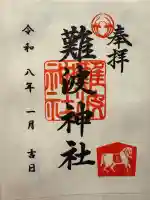 奉拝
難波神社
令和八年一月吉日